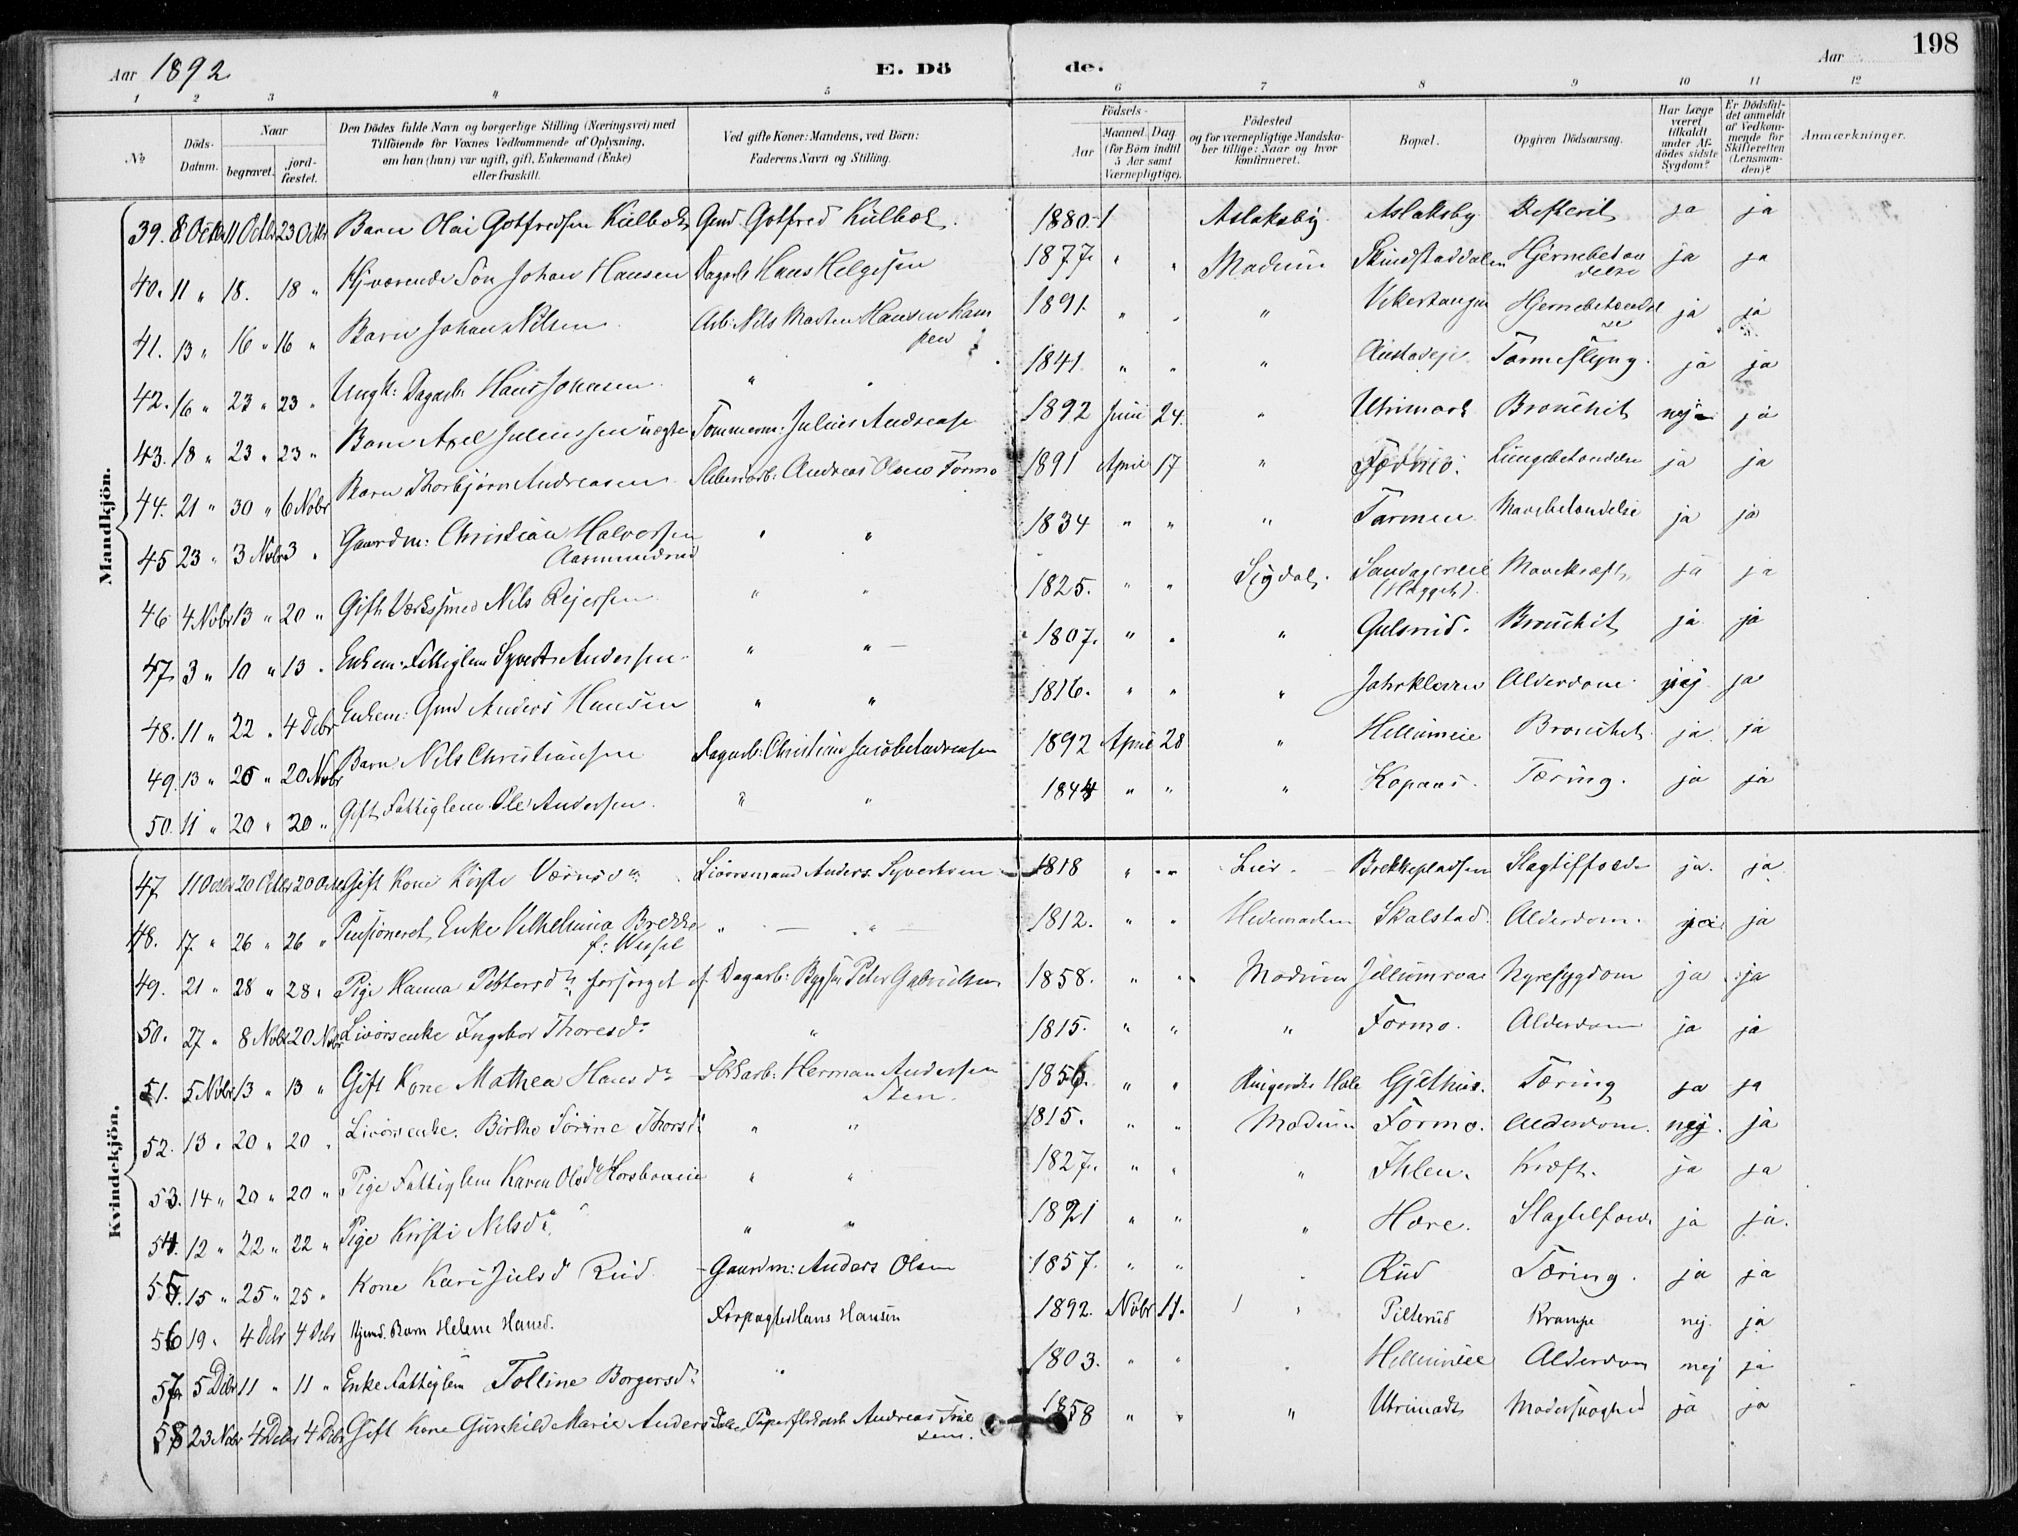 198
Aar 1892
E. Dö
de.
Aar
1 2 3 4 5 6 7 8 9 10 11 12
No
Döds-Datum.
Naar
begravet.
jord-fæstet.
Den Dödes fulde Navn og borgerlige Stilling (Næringsvei) med
Tilföiende for Voxnes Vedkommende af Oplysning,
om han (hun) var ugift, gift, Enkemand (Enke)
eller fraskilt.
Ved gifte Koner: Mandens, ved Börn:
Faderens Navn og Stilling.
Födsels-
Aar
Maaned Dag
(for Börn indtil
5 Aar samt
Værnepligtige).
Födested
og for værnepligtige Mandska-
ber tillige: Naar og hvor
konfirmeret.
Bopæl.
Opgiven Dödsaarsag.
Har Læge
været
tilkaldt
under Af-
dödes sidste
Sygdom?
Er Dödsfal-
det anmeldt
af Vedkom-
mende for
Skifteretten
(Lensman-
den)?
Anmærkninger.
Mandkjön.
39. 8 Octbr 11 Octbr 23 Octbr Barn Olai Gotfredsen Kulbæk Gmd. Gotfred Kulbæk. 1880 Aslaksby Aslaksby Difterit ja ja
40. 11 " 18. 18 " Hjværende Søn Johan Hansen Dagarb Hans Helgesen 1877 " " Modum Hjernebetændelse ja ja
41. 13 " 16 " 16 " Barn Johan Nilsen Arb: Nils Martin Hansen 1891. " " " Hjernebetændelse ja ja
42. 16 " 23 " 23 " Ungk: Dagarb. Hans Johnsen " " 1841 " " " Tarmeslyng. ja ja
43. 18 " 23 " 23 " Barn Axel Juliussen uægte Tømmerm: Julius Andreasen 1892 Juni 24. " Utrimark Bronchit nej ja
44. 21 " 30 " 6 Nobr Barn Thorbjørn Andreasen Andreas Olsen Formo 1891 April 17 " Formo. Lungebetændelse ja ja
45 23 " 3 Nobr 3 " Gaardm: Christian Halvorsen Aasmundrud " " 1834 " " " Tarmen Mavebetændelse ja ja
46 4 Nobr 13 " 20 " Gift Værkssmed Nils Reiersen " " 1825. " " Sigdal. Mavekræft ja ja
47 3 " 10 " 13 " Enkem: Fattiglem Syvert Andersen " " 1807. " " " Gulsrud. Bronchit ja ja
48. 11 " 22 " 4 Debr Enkem: Gmd Anders Hansen " " 1816. " " " Alderdom nej ja
49. 13 " 26 " 20 Nobr Barn Nils Christiansen Dagarb: Christian Jacob Andreasen 1892 April 28 " Hellumeie Bronchit ja ja
50. 11 " 20 " 20 " Gift Fattiglem Ole Andersen. " " 1844 " " " Kopaas. Tæring. ja ja
Kvindekjön.
47 11 Octbr 20 Octbr 20 Octbr Gift Kone Kirsti Livørsmand Anders Syvertsen 1818 " " Lier. Brekkepladsen Slagtilfælde ja. ja
48. 17. " 26 " 26 " Pensioneret Enke Vilhelmina Brekke f: Wessel " " 1812. " " Hedemarken Skalstad. Alderdom. ja ja
49. 21 " 28 " 28 " Pige Hanna Pettersdr. forsørget af Dagarb: Peter Gabrielsen 1858. " " Modum Nyresygdom ja ja
50. 27 " 8 Nobr 20 Nobr Livørsenke Ingebor Thoresdr " 1815. " " " Formo. Alderdom ja ja
51. 5 Nobr 13 " 13 " Gift Kone Mathea Hansdr Herman Andersen Sten. 1856. " " Ringerike Hole Gjethus. Tæring ja ja
52. 13 " 20 " 20 " Livørsenke. Birthe Sørine Thorsdr " " 1815. " " Modum Formo. Alderdom. nej. ja
53. 14 " 20 " 20 " Pige Fattiglem Karen Olsdr " " 1827. " " " Ihlen. Kræft. ja ja
54. 12 " 22 " 22 " Pige Kirsti Nilsdr. " " 1821 " " " Hære. Slagtilfælde ja ja.
55. 15 " 25 " 25 " Kone Kari Juelsd Rud Gaardm: Anders Olsen 1857. " " " Rud Tæring. ja ja
56 19 " 4 Debr 4 Debr Hjmd. Barn Helene Hansd. Forpagter Hans Hansen 1892. Nobr 11. " Pilterud Krampe nej. ja
57 5 Debr 11 " 11 " Enke Fattiglem Tolline Borgersdr " 1803. " " " Hellumeie Alderdom nej ja
58 23 Nobr 4 Debr 4 Debr Gift Kone Gunhild Marie Andersd Andreas 1858 " " " ja ja